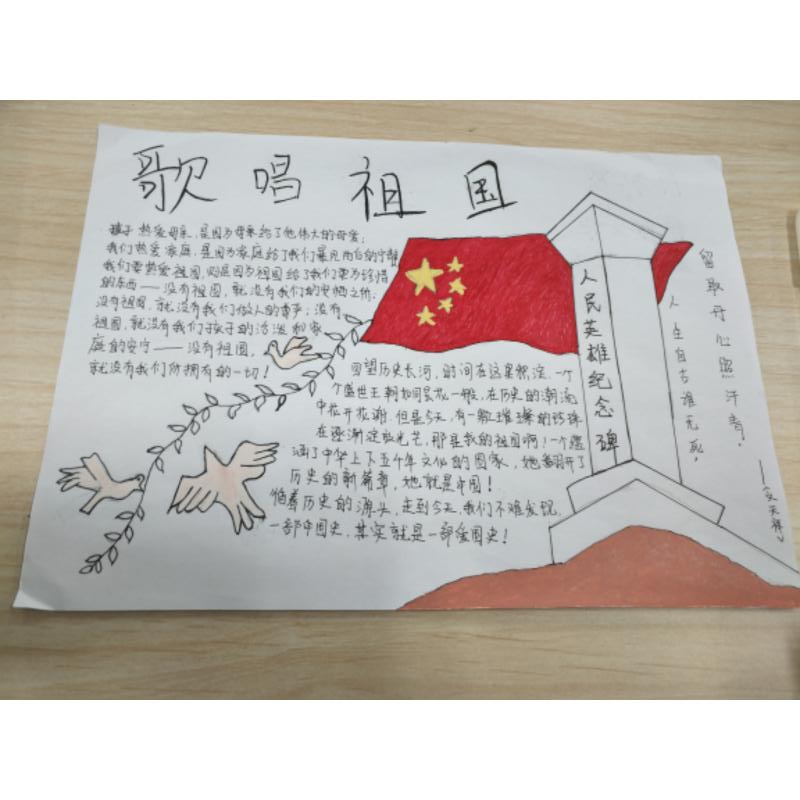 歌唱祖国
孩子热爱母亲,是因为母亲给了他伟大的母爱;
我们热爱家庭,是因为家庭给了我们暴风雨后的宁静
我们要热爱祖国,则是因为祖国给了我们更为珍惜
的东西——没有祖国,就没有我们的安栖之所,
没有祖国,就没有我们做人的尊严;没有
祖国,就没有我们孩子的活泼和家
庭的安宁——没有祖国,
就没有我们所拥有的一切!
回望历史长河,时间在这里积淀,一个
个盛世王朝如同昙花一般,在历史的潮涌
中花开花谢.但是今天,有一颗璀璨的珍珠
在逐渐绽放光芒,那是我的祖国啊!一个蕴
涵了中华上下五千年文化的国家,她翻开了
历史的新篇章,她就是中国!
循着历史的源头,走到今天,我们不难发现,
一部中国史,其实就是一部爱国史!
人民英雄纪念碑
人生自古谁无死,
留取丹心照汗青。
——(文天祥)